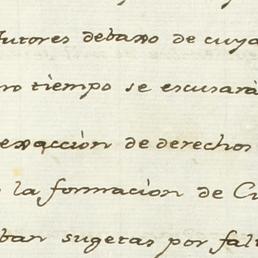 Autores debaxo de cuya
tiempo se escusará
exacción de derechos
la formacion de
sugetas por